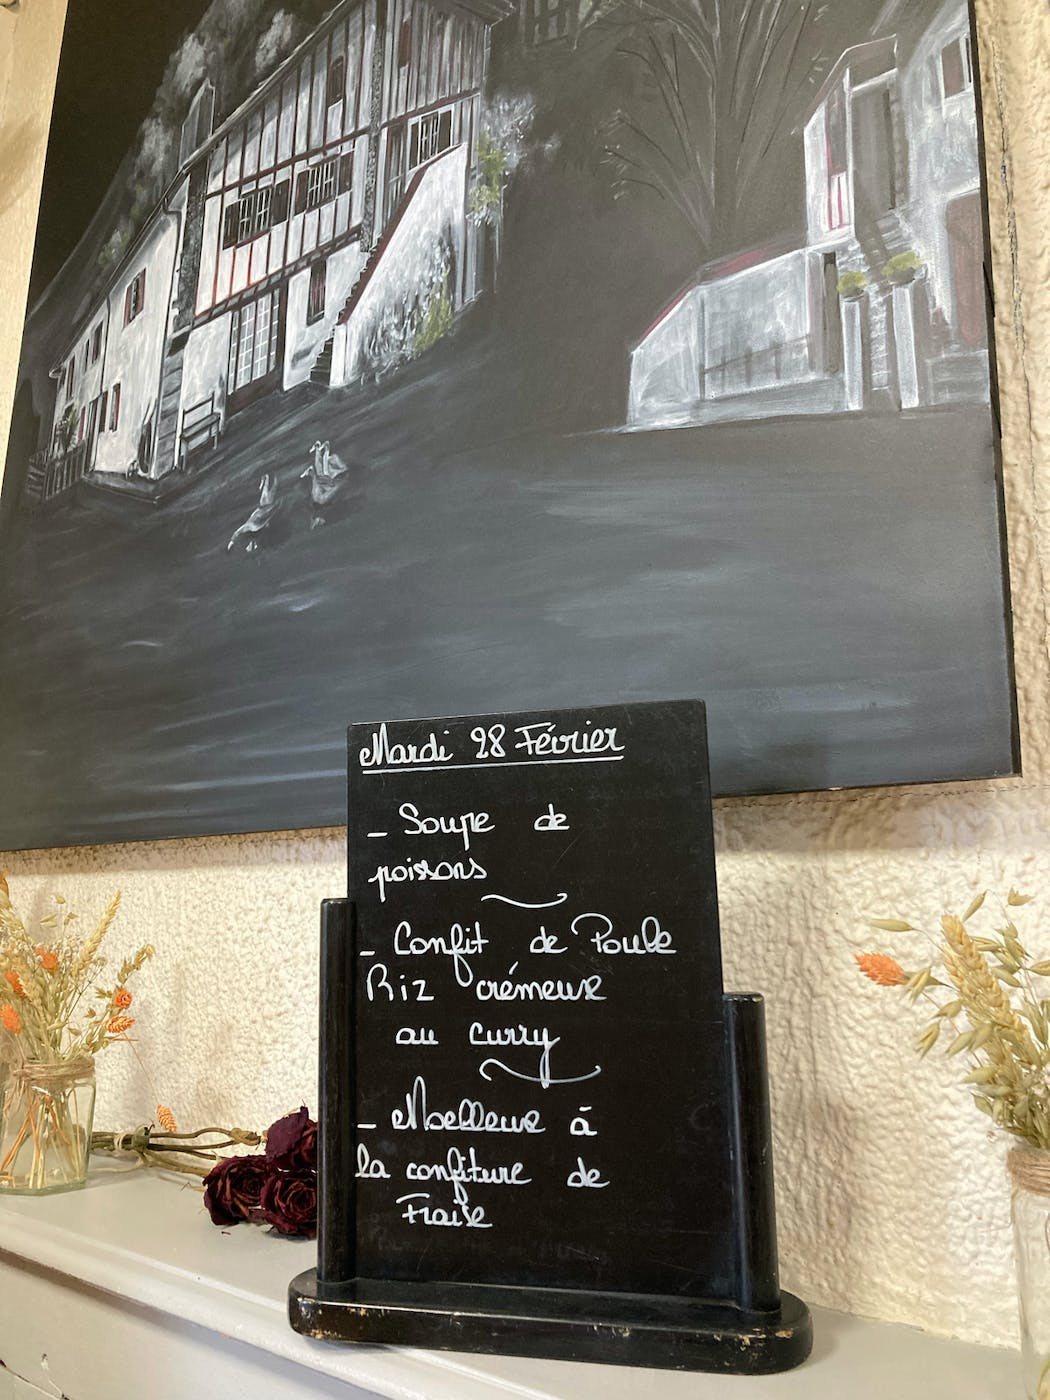 Mardi 28 Février
- Soupe de
poissons
- Confit de Poule
Riz crémeux
au curry
- Moelleux à
la confiture de
Fraise